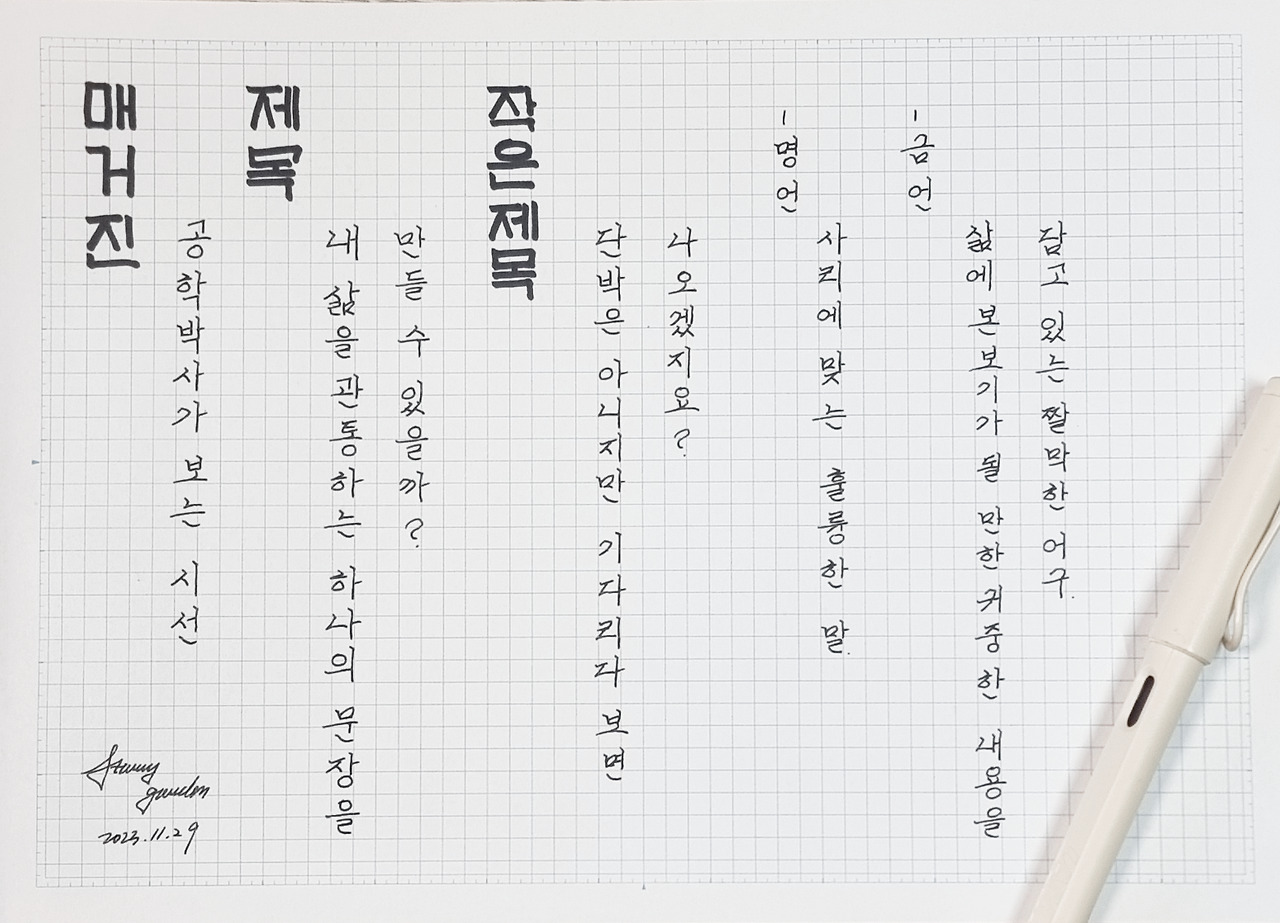 매거진
공학박사가 보는 시선
제목
내 삶을 관통하는 하나의 문장을
만들 수 있을까?
작은제목
단박은 아니지만 기다리다 보면
나오겠지요?
-명언
사리에 맞는 훌륭한 말.
-금언
삶에 본보기가 될 만한 귀중한 내용을
담고 있는 짤막한 어구.
Starry
garden
2023.11.29